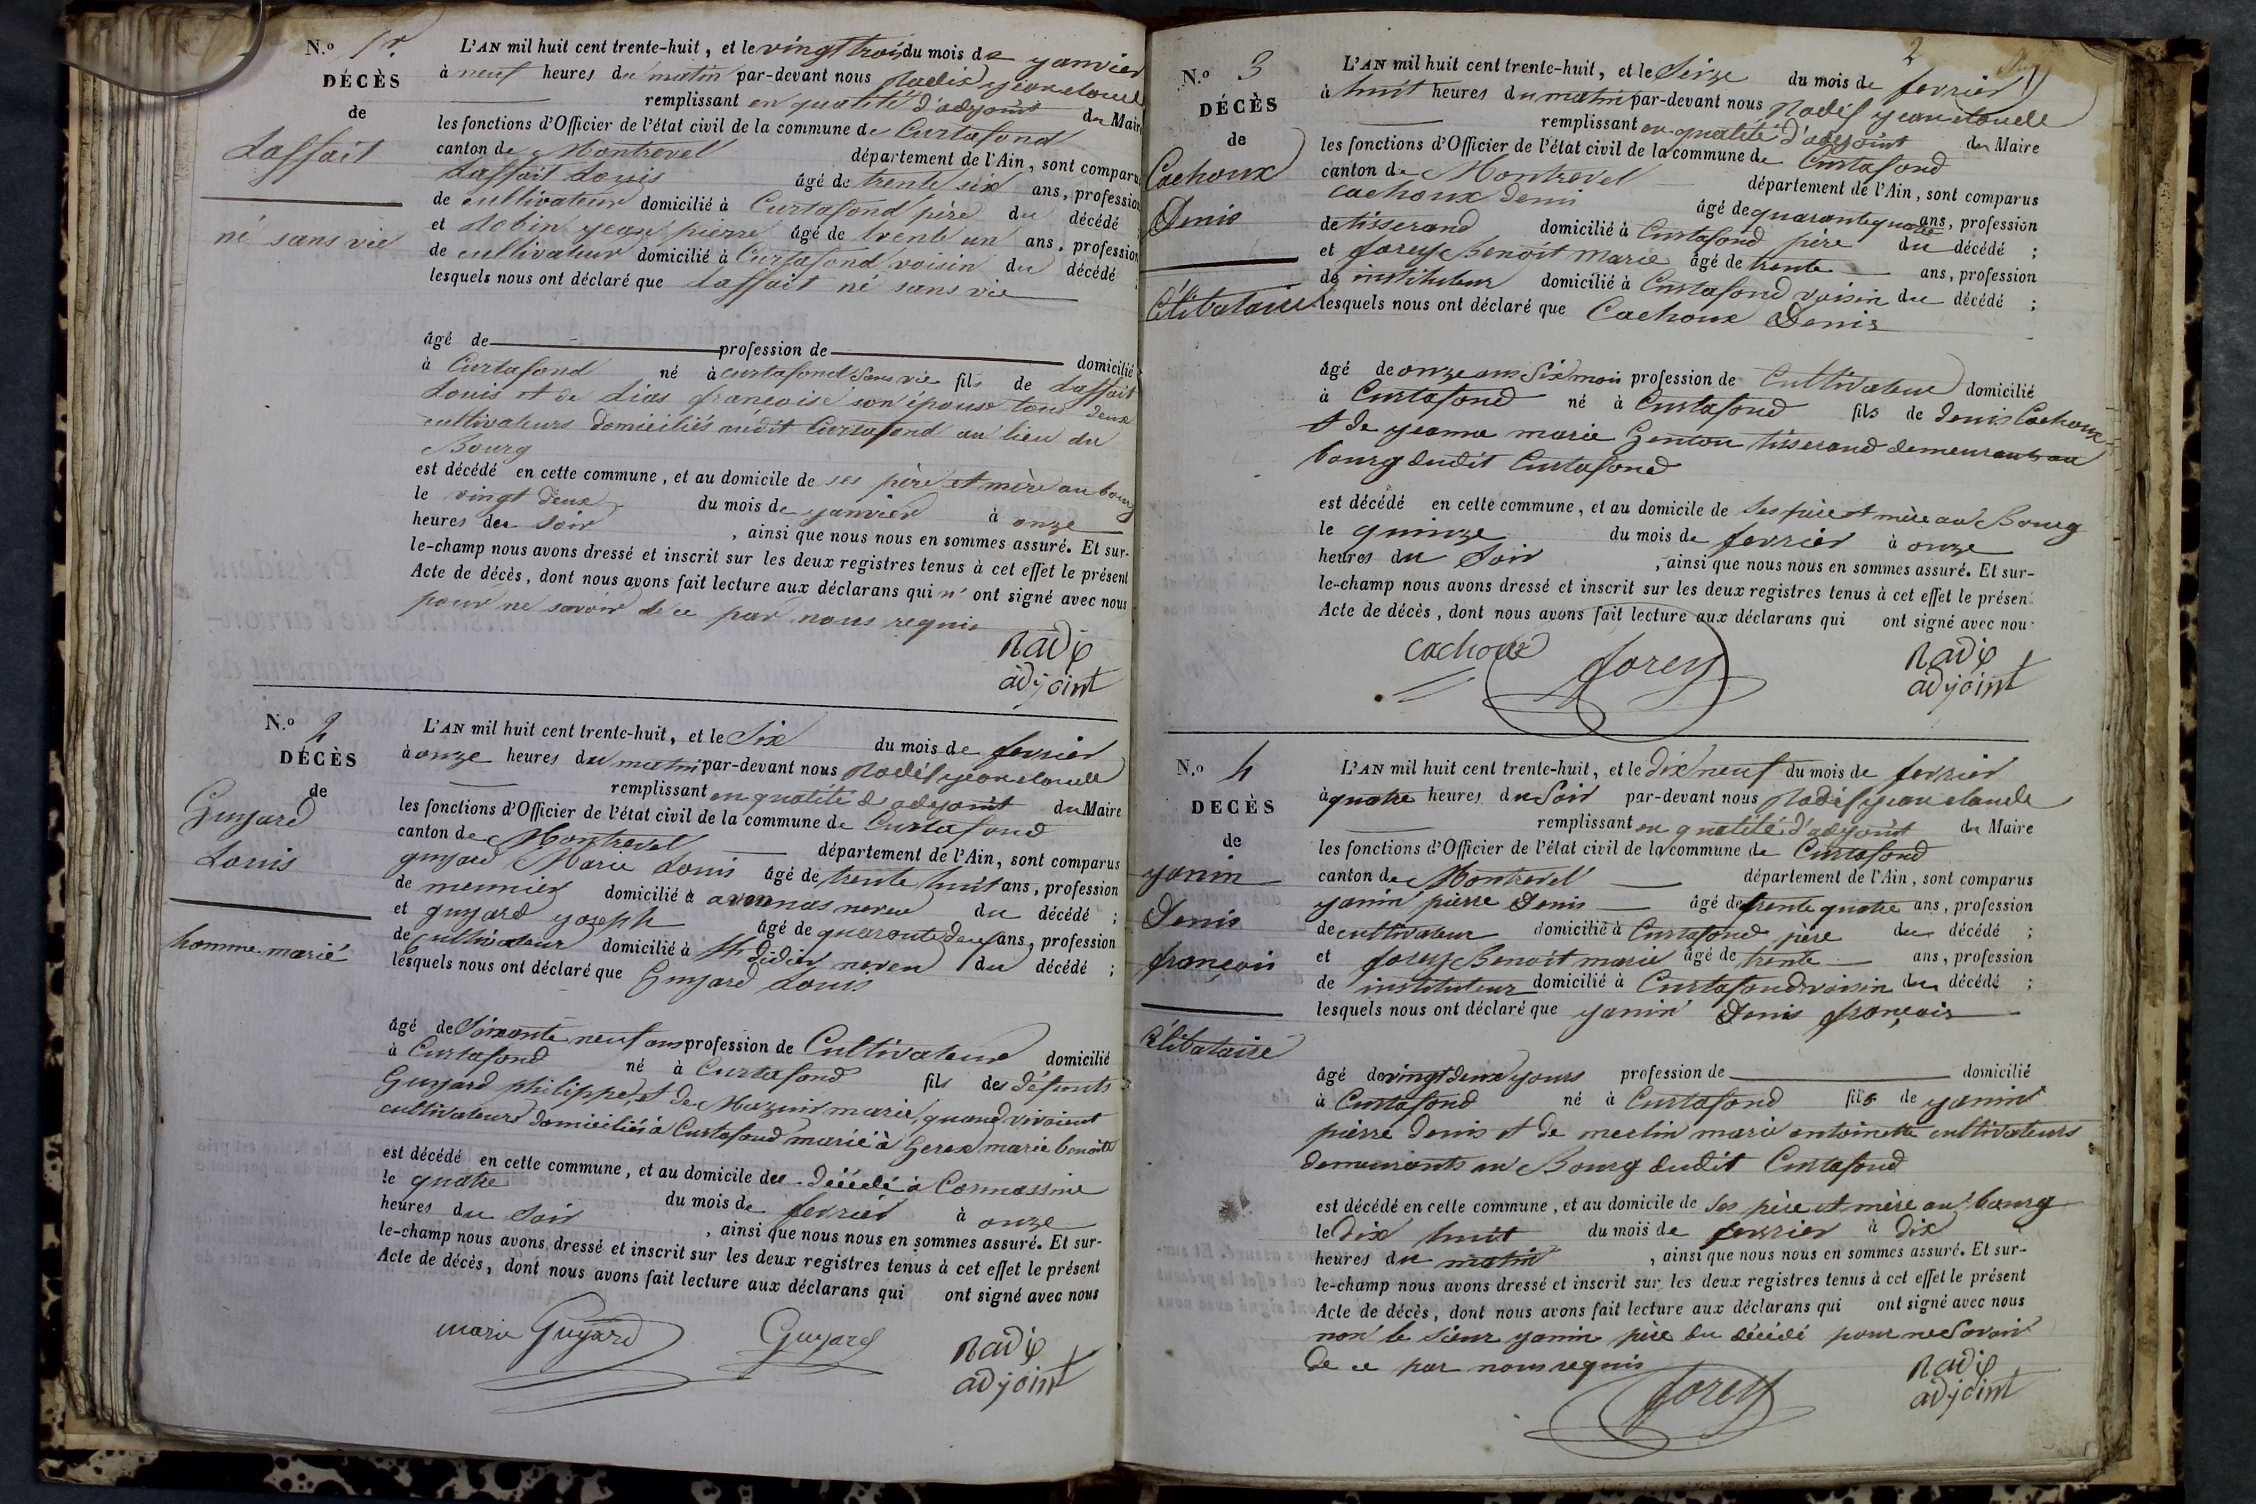 N.o 1r.
DÉCÈS
de
Laffait
né sans vie
L'AN mil huit cent trente-huit, et le vingt trois du mois de janvier
à neuf heures du matin par-devant nous Nadis jean claude
remplissant en qualité d'adjoint du Maire
les fonctions d'Officier de l'état civil de la commune de Curtafond
canton de Montrevel département de l'Ain, sont comparus
Laffait Louis âgé de trente six ans, profession
de cultivateur domicilié à Curtafond père du décédé
et Robin jean pierre âgé de trente un ans, profession
de cultivateur domicilié à Curtafond voisin du décédé
lesquels nous ont déclaré que Laffait né sans vie
âgé de profession de domicilié
à Curtafond né à curtafond sans vie fils de Laffait
Louis et de Lias françoise son épouse tous deux
cultivateurs domiciliés audit Curtafond au lieu du
Bourg
est décédé en cette commune, et au domicile de ses père et mère au bourg
le vingt deux du mois de janvier à onze
heures du soir, ainsi que nous nous en sommes assuré. Et sur-
le-champ nous avons dressé et inscrit sur les deux registres tenus à cet effet le présent
Acte de décès, dont nous avons fait lecture aux déclarans qui n' ont signé avec nous
pour ne savoir de ce par nous requis
Nadis
adjoint
N.o 2
DÉCÈS
de
Guyard
Louis
homme marié
L'AN mil huit cent trente-huit, et le Six du mois de fevrier
à onze heures du matin par-devant nous Nadis jean claude
remplissant en qualité d'adjoint du Maire
les fonctions d'Officier de l'état civil de la commune de Curtafond
canton de Montrevel département de l'Ain, sont comparus
guyard Marie Louis âgé de trente huit ans, profession
de meunier domicilié à neveu du décédé ;
et guyard yozeph âgé de quarante deux ans, profession
de cultivateur domicilié à St didier neveu du décédé ;
lesquels nous ont déclaré que Guyard Louis
âgé de Soixante neuf ans profession de Cultivateur domicilié
à Curtafond né à Curtafond fils des défunts
Guyard philippe et de Mazuir marie, quand vivaient
cultivateurs domiciliés à Curtafond marié à Gerex marie benoite
est décédé en cette commune, et au domicile du décédé à Cormassine
le quatre du mois de fevrier à onze
heures du Soir, ainsi que nous nous en sommes assuré. Et sur-
le-champ nous avons dressé et inscrit sur les deux registres tenus à cet effet le présent
Acte de décès, dont nous avons fait lecture aux déclarans qui ont signé avec nous
marie Guyard Guyard Nadis
adjoint
2
N.o 3
DÉCÈS
de
Cachoux
Denis
Célibataire
L'AN mil huit cent trente-huit, et le Seize du mois de fevrier
à huit heures du matin par-devant nous Nadis jean claude
remplissant en qualité d'adjoint du Maire
les fonctions d'Officier de l'état civil de la commune de Curtafond
canton de Montrevel département de l'Ain, sont comparus
cachoux denis âgé de quarante quatre ans, profession
de tisserand domicilié à Curtafond père du décédé ;
et forey Benoit marie âgé de trente ans, profession
de instituteur domicilié à Curtafond voisin du décédé ;
lesquels nous ont déclaré que Cachoux Denis
âgé de onze ans six mois profession de Cultivateur domicilié
à Curtafond né à Curtafond fils de denis Cachoux
et de jeanne marie Gencou tisserand demeurant au
bourg dudit Curtafond
est décédé en cette commune, et au domicile de Ses père et mère au Bourg
le quinze du mois de fevrier à onze
heures du Soir, ainsi que nous nous en sommes assuré. Et sur-
le-champ nous avons dressé et inscrit sur les deux registres tenus à cet effet le présen
Acte de décès, dont nous avons fait lecture aux déclarans qui ont signé avec nou
cachoux forey Nadis
adjoint
N.o 4
DECÈS
de
yanin
Denis
françois
célibataire
L'AN mil huit cent trente-huit, et le dix neuf du mois de fevrier
à quatre heures du Soir par-devant nous Nadis jean claude
remplissant en qualité d'adjoint du Maire
les fonctions d'Officier de l'état civil de la commune de Curtafond
canton de Montrevel département de l'Ain, sont comparus
yanin pierre Denis âgé de trente quatre ans, profession
de cultivateur domicilié à Curtafond père du décédé ;
et forey Benoit marie âgé de trente ans, profession
de instituteur domicilié à Curtafond voisin du décédé ;
lesquels nous ont déclaré que yanin Denis françois
âgé de vingt deux yours profession de domicilié
à Curtafond né à Curtafond fils de yanin
pierre denis et de merlin marie antoinette cultivateurs
demeurants au Bourg dudit Curtafond
est décédé en cette commune, et au domicile de Ses père et mère au bourg
le dix huit du mois de fevrier à dix
heures du matin, ainsi que nous nous en sommes assuré. Et sur-
le-champ nous avons dressé et inscrit sur les deux registres tenus à cet effet le présent
Acte de décès, dont nous avons fait lecture aux déclarans qui ont signé avec nous
non le sieur yanin père du décédé pour ne Savoir
de ce par nous requis
forey Nadis
adjoint